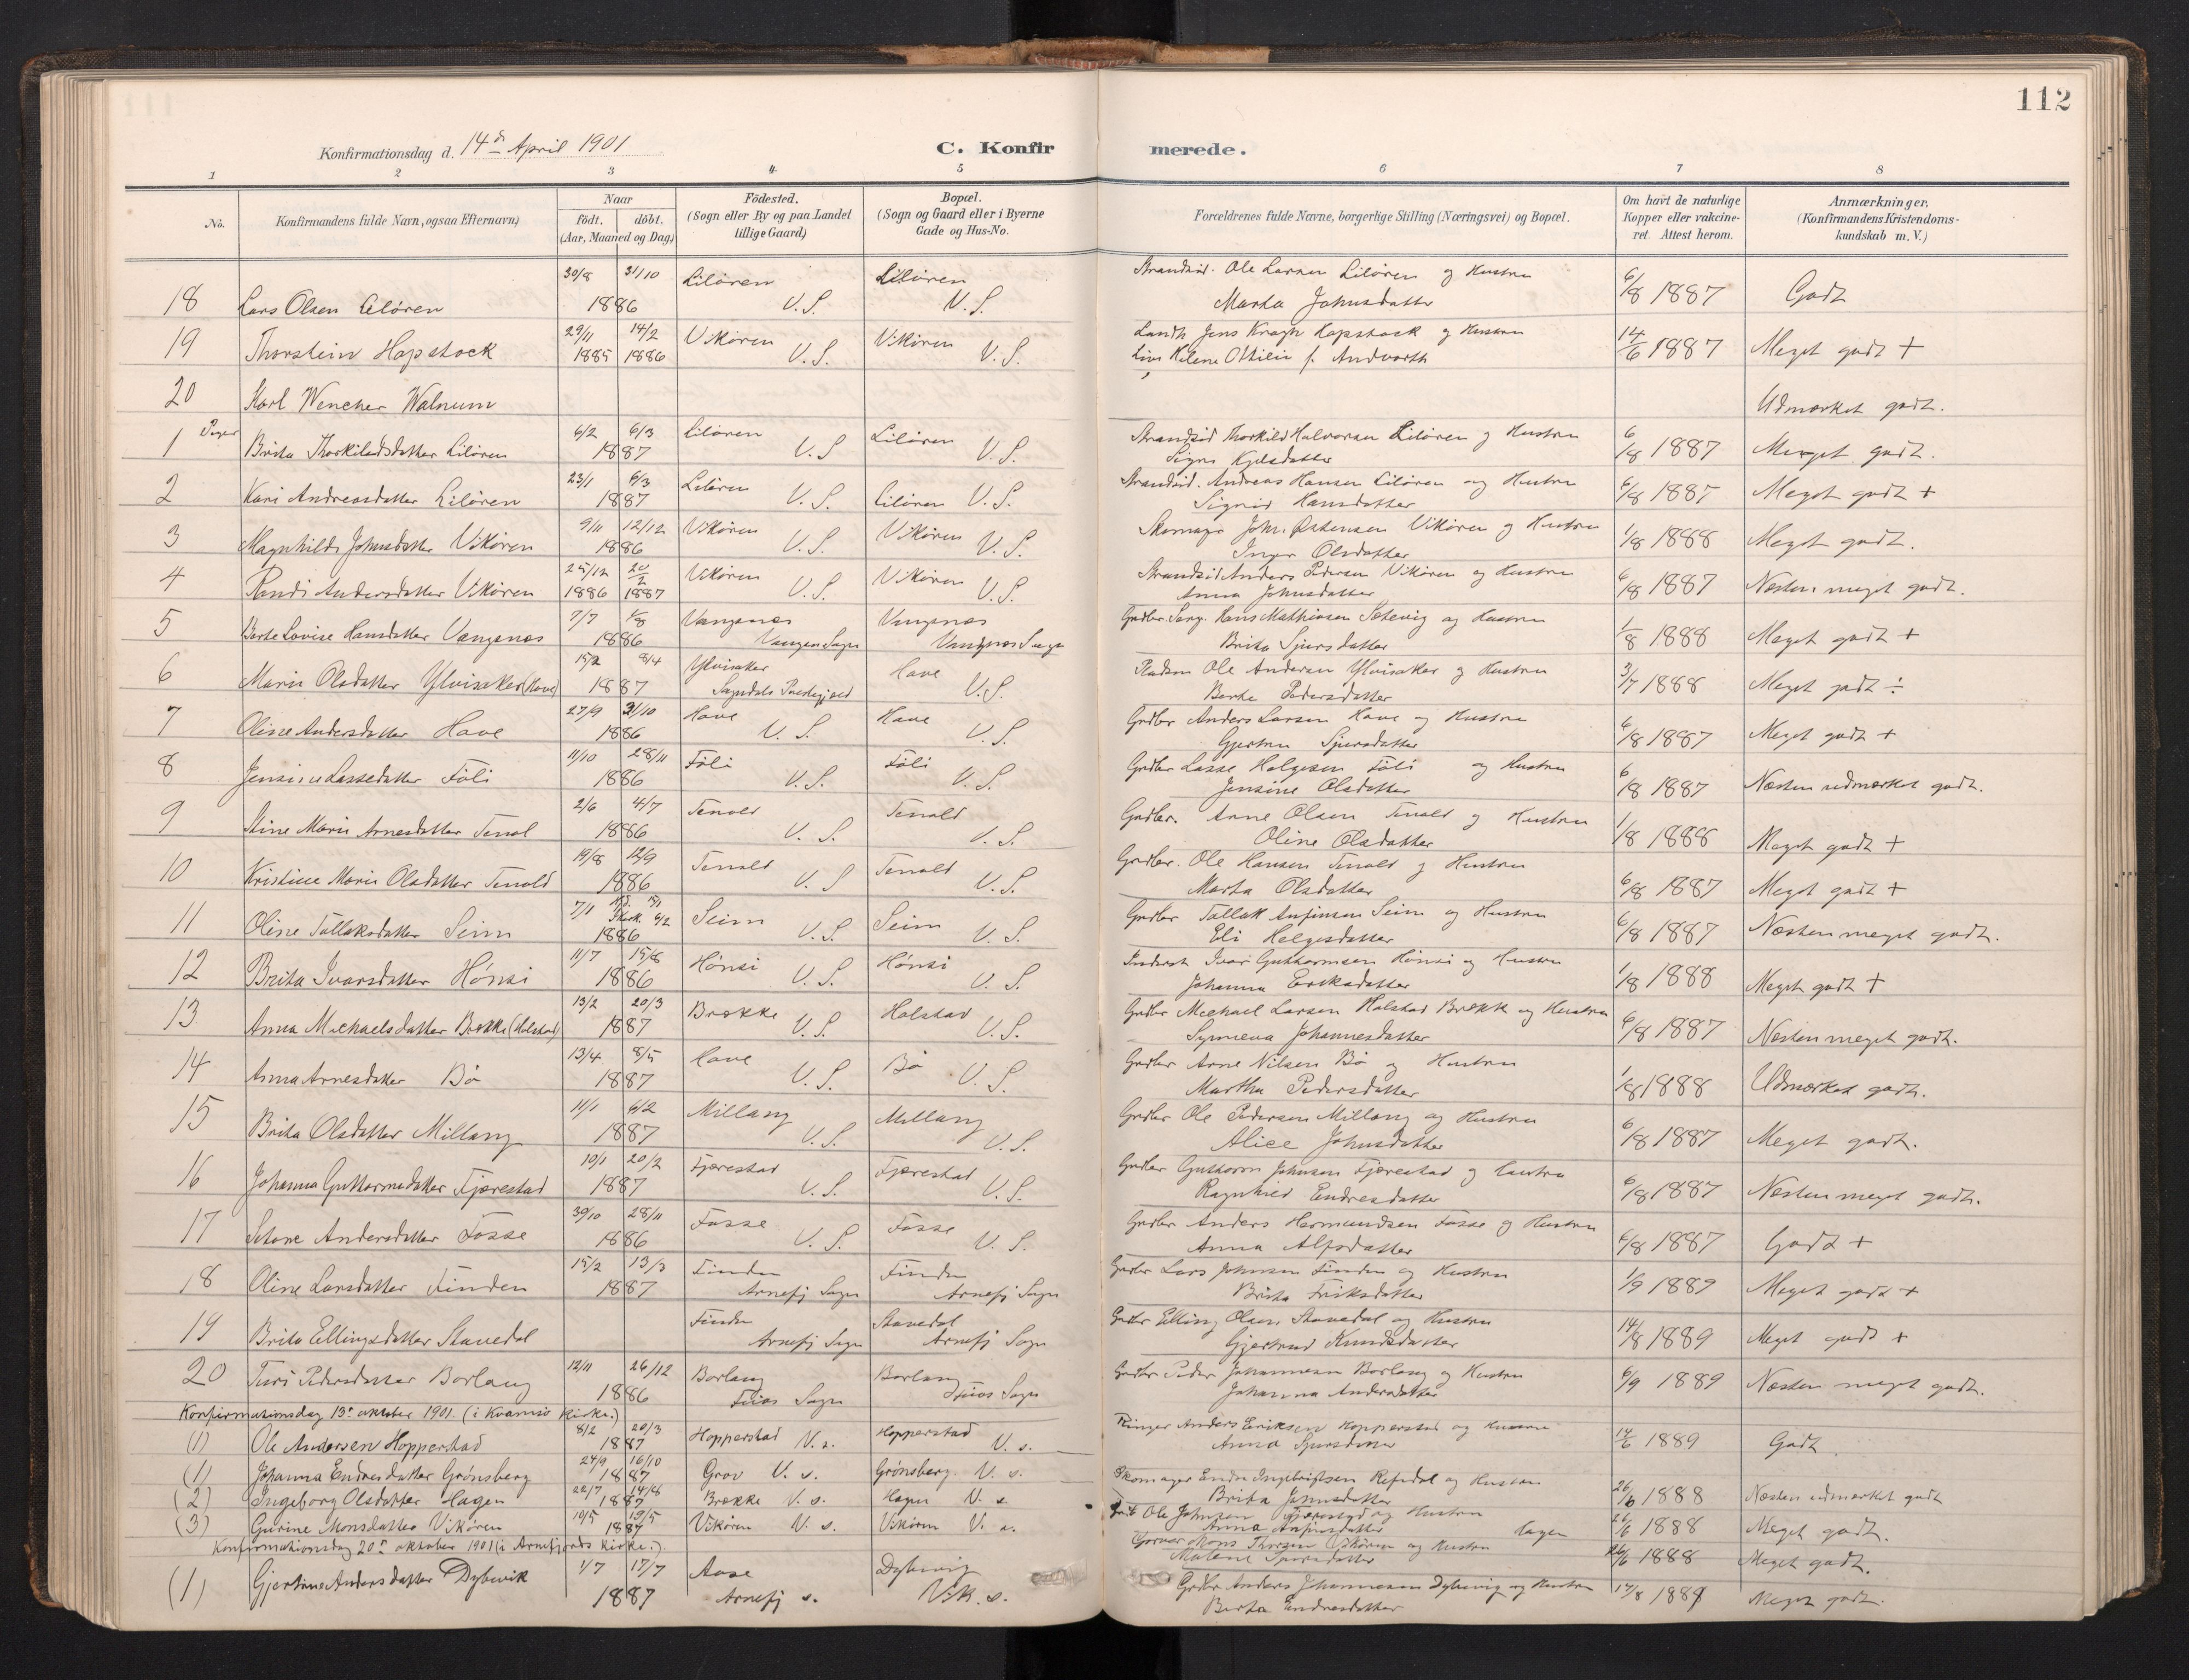 112
Konfirmationsdag d. 14de April 1901
C. Konfir merede.
1 2 3 4 5 6 7 8
No. Konfirmandens fulde Navn, ogsaa Efternavn) Naar födt. döbt. (Aar, Maaned og Dag) Födested. (Sogn eller By og paa Landet tillige Gaard) Bopæl. (Sogn og Gaard eller i Byerne Gade og Hus-No. Forældrenes fulde Navne, borgerlige Stilling (Næringsvei) og Bopæl. Om havt de naturlige Kopper eller vakcineret. Attest herom. Anmærkninger. (Konfirmandens Kristendomskundskab m. V.)
18 Lars Olsen Liløren 30/8 31/10 1886 Liløren V. S. Liløren V. S. Strandsid. Ole Larsen Liløren og Hustru Marta Johnsdatter 6/8 1887 Godt
19 Thorstein Hopstock 29/11 1885 14/2 1886 Vikøren V. S. Vikøren V. S. Landh. Jens Kragh Hopstock og Hustru Helene Ottilie f. 14/6 1887 Meget godt +
20 Karl Wencher Walnum Udmærket godt.
Piger
1 Brita Thorkildsdatter Liløren 6/2 6/3 1887 Liløren V. S Liløren V. S. Strandsid Thorkild Halvorsen Liløren og Hustru Signe 6/8 1887 Meget godt.
2 Kari Andreasdatter Liløren 23/1 6/3 1887 Liløren V. S. Liløren V. S. Strandsid. Andreas Hansen Liløren og Hustru Sigrid Hansdatter 6/8 1887 Meget godt +
3 Magnhild Johnsdatter Vikøren 9/11 12/12 1886 Vikøren V. S. Vikøren V. S. Skomager John Østensen Vikøren og Hustru Inger Olsdatter 1/8 1888 Meget godt.
4 Randi Andersdatter Vikøren 25/12 1886 20/2 1887 Vikøren V. S. Vikøren V. S. Strandsid Anders Pedersen Vikøren og Hustru Anna Johnsdatter 6/8 1887 Næsten meget godt.
5 Berte Lovise Hansdatter Vangsnes 7/7 1/8 1886 Vangsnes Vangsnes Sogn Vangsnes Vangsnes Sogn Grdbr. Hans Mathiasen Sætevig og Hustru Brita Sjursdatter 1/8 1888 Meget godt +
6 Marie Olsdatter Ylvisaker (Hove) 15/2 8/4 1887 Ylvisaker Sogndals Præstegjeld Hove V. S. Pladsm Ole Andersen Ylvisaker og Hustru Berte Pedersdatter 3/7 1888 Meget godt ÷
7 Oline Andersdatter Hove 27/9 31/10 1886 Hove V. S. Hove V. S. Grdbr Anders Larsen Hove og Hustru Gjertru Sjursdatter 6/8 1887 Meget godt +
8 Jensine Lassedatter Føli 11/10 28/11 1886 Føli V. S. Føli V. S. Grdbr Lasse Helgesen Føli og Hustru Jensine Olsdatter 6/8 1887 Næsten udmærket godt.
9 Stine Marie Arnesdatter Tenol 2/6 4/7 1886 Tenold V. S. Tenold V. S. Grdbr. Arne Olsen Tenold og Hustru Oline Olsdatter 1/8 1888 Meget godt +
10 Kristine Marie Olsdatter Tenold 19/8 12/9 1886 Tenold V. S Tenold V. S. Grdbr. Ole Hansen Tenold og Hustru Marta Olsdatter 6/8 1887 Meget godt +
11 Oline Tollaksdatter Seim 7/1 1886 Seim V. S. Seim V. S. Grdbr Tollak Anfinsen Seim og Hustru Eli Helgesdatter 6/8 1887 Næsten meget godt.
12 Brita Ivarsdatter Hønsi 11/7 15/8 1886 Hønsi V. S. Hønsi V. S. Ivar Guttormsen Hønsi og Hustru Johanna Eriksdatter 1/8 1888 Meget godt +
13 Anna Michaelsdatter Brække (Holstad) 13/2 20/3 1887 Brække V. S. Holstad V. S. Grdbr Michael Larsen Holstad Brække og Hustru Synneva Johannesdatter 6/8 1887 Næsten meget godt.
14 Anna Arnesdatter Bø 13/4 8/5 1887 Hove V. S. Bø V. S. Grdbr Arne Nilsen Bø og Hustru Martha Pedersdatter 1/8 1888 Udmærket godt.
15 Brita Olsdatter Millang 11/1 6/2 1887 Millang V. S. Millang V. S. Grdbr Ole Pedersen Millang og Hustru Alice Johnsdatter 6/8 1887 Meget godt.
16 Johanna Guttormsdatter Fjærestad 10/1 20/2 1887 Fjærestad V. S. Fjærestad V. S. Grdbr Guttorm Johnsen Fjærestad og Hustru Ragnhild Endresdatter 6/8 1887 Næsten meget godt.
17 Andersdatter Fosse 30/10 28/11 1886 Fosse V. S. Fosse V. S. Grdbr Anders Hermundsen Fosse og Hustru Anna Alfsdatter 6/8 1887 Godt +
18 Oline Larsdatter Finden 15/2 13/3 1887 Finden Arnefj Sogn Finden Arnefj Sogn Grdbr Lars Johnsen Finden og Hustru Brita Eriksdatter 1/9 1889 Meget godt +
19 Brita Ellingsdatter Stavedal Finden Arnefj Sogn Stavedal Arnefj Sogn Grdbr Elling Olsen Stavedal og Hustru Gjertrud Knudsdatter 14/8 1889 Meget godt +
20 Turi Pedersdatter Borlaug 12/11 26/12 1886 Borlaug Sogn Borlaug Sogn Grdbr Peder Johannesen Borlaug og Hustru Johanna Andersdatter 6/9 1889 Næsten meget godt.
Konfirmationsdag 13de oktober 1901. (i Kvamsø Kirke.)
(1) Ole Andersen Hopperstad 8/2 20/3 1887 Hopperstad V. s. Hopperstad V. s. Ringer Anders Eriksen Hopperstad og Hustru Anna Sjursdatter 14/6 1889 Godt
(1) Johanna Endresdatter Grønsberg 24/9 16/10 1887 Grov V. s. Grønsberg V. s. Skomager Endre Ingebrigtsen Refsdal og Hustru Brita Johnsdatter 26/6 1888 Næsten udmærket godt
(2) Ingeborg Olsdatter Hagen 22/7 14/8 1887 Brække V. s. Hagen V. s. Ole Johnsen Fjærestad og Hustru Anna Anfinsdatter Hagen 26/6 1888 Meget godt.
(3) Gurine Monsdatter Vikøren 10/5 19/5 1887 Vikøren V. s. Vikøren V. s. Garver Mons Thorsen Vikøren og Hustru Malene Sjursdatter 26/6 1888 Meget godt.
Konfirmationsdag 20de oktober 1901 (i Arnefjords Kirke.).
(1) Gjertine Andersdatter Dybevik 1/7 17/7 1887 Aase Arnefj s. Dybevig Vik. s. Grdbr Anders Johannesen Dybevig og Hustru Berta Endresdatter 14/8 1889 Meget godt.